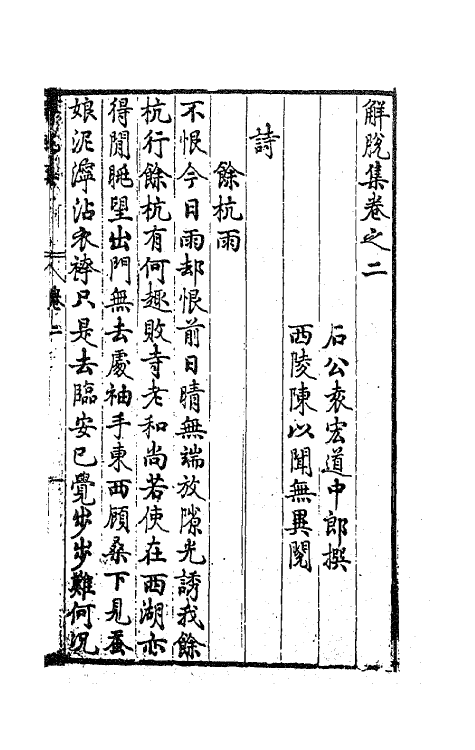 解脫集卷之二
石公袁宏道中郎撰
西陵陳以聞無異閱
詩
餘杭雨
不恨今日雨却恨前日晴無端放隙光誘我餘
杭行餘杭有何趣敗寺老和尚若使在西湖亦
得閒眺望出門無去處袖手東西顧桑下見蚕
娘泥濘沾衣褲只是去臨安已覺步步難何况
卷二